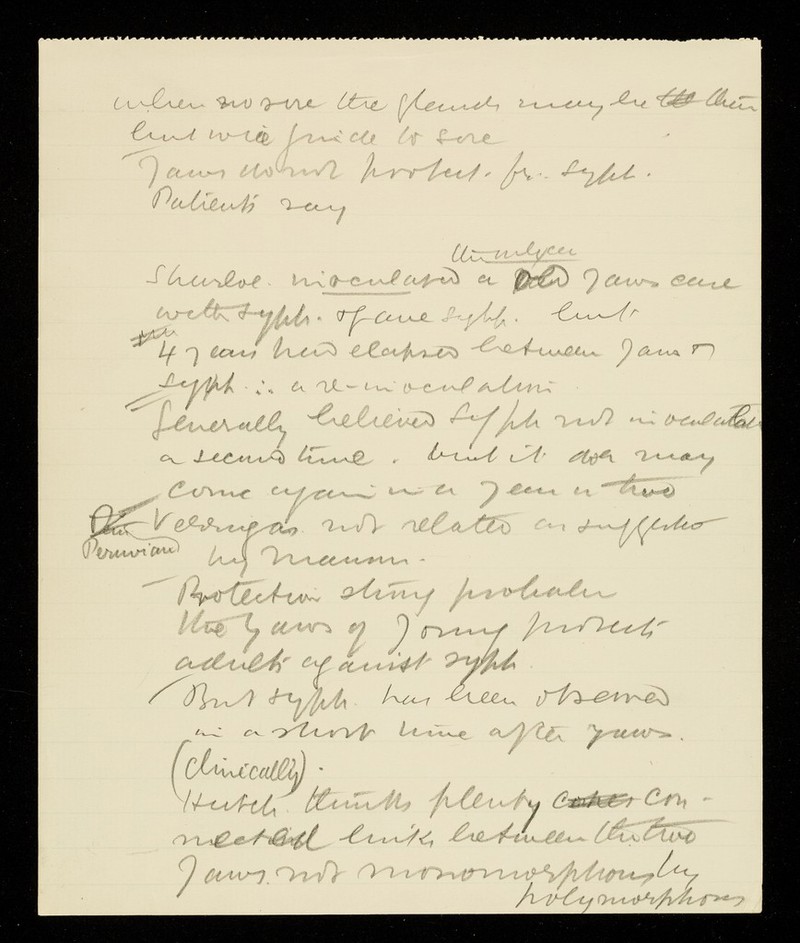 when no sore the glands may be then
but will guide to sore
Yaws do not protect. fr. syph.
Patients say
Charloe. inoculated a Yaws case
with syph. of ane syph. but
4 years had elapsed between Yaws &
syph. ∴ a re-inoculation
Generally believed syph not inoculatable
a second time. but it may
come again in a year or two
Peruvian Verrugas not related as suggested
by Manson.
Protection string probable
the Yaws of young protects
adults against syph.
But syph. has been observed
in a short time after yaws.
(clinically).
Hutch. thinks plenty con-
nected links between the two
Yaws. not monomorphous by
polymorphous